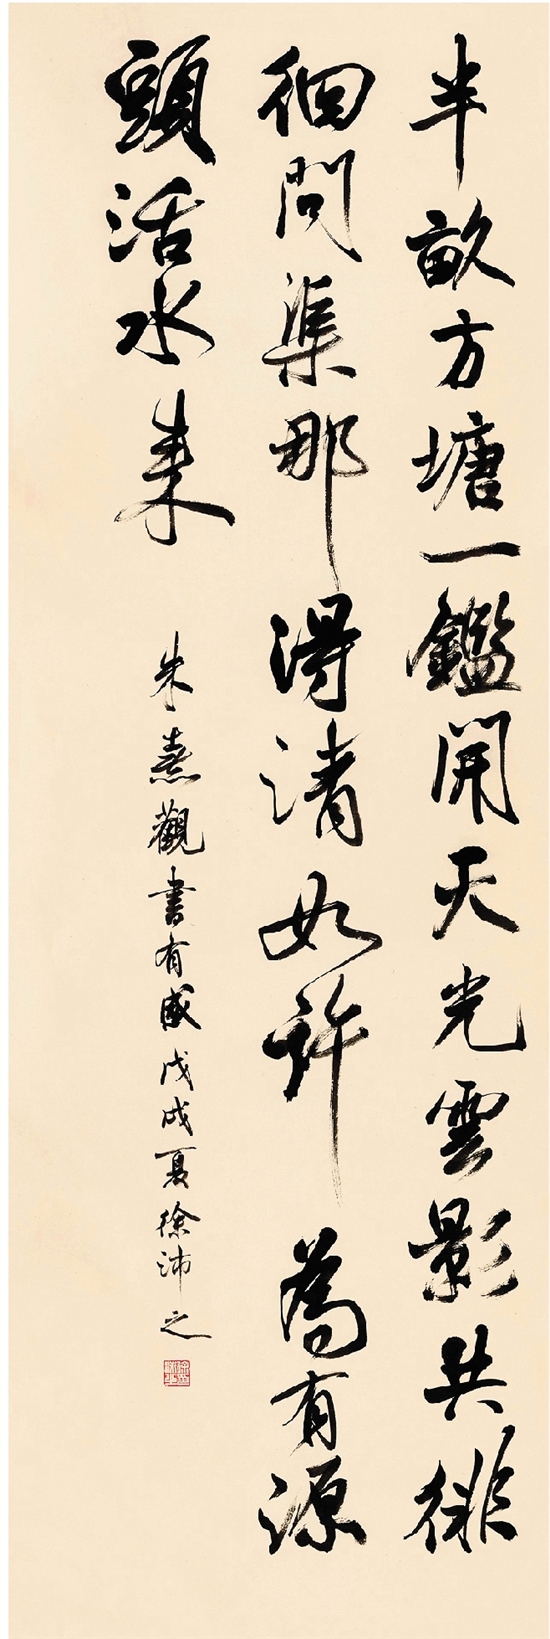 半畝方塘一鑑開天光雲影共徘
徊問渠那得清如許為有源
頭活水来
朱熹觀書有感戊戌夏徐沛之